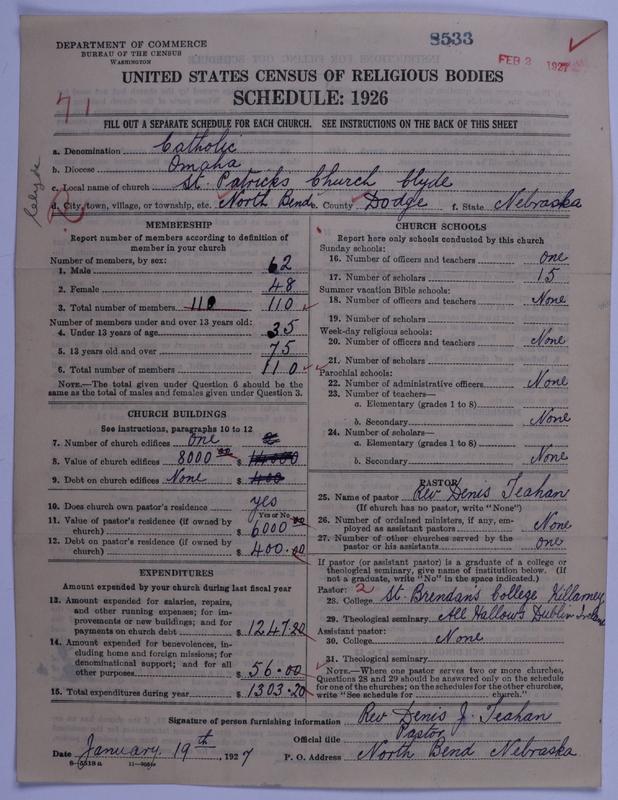 8533
DEPARTMENT OF COMMERCE
BUREAU OF THE CENSUS
WASHINGTON
FEB 2 1927
UNITED STATES CENSUS OF RELIGIOUS BODIES
SCHEDULE: 1926
71
FILL OUT A SEPARATE SCHEDULE FOR EACH CHURCH. SEE INSTRUCTIONS ON THE BACK OF THIS SHEET
a. Denomination Catholic
b. Diocese Omaha
c. Local name of church St. Patricks Church Clyde
Clyde
d. City, town, village, or township, etc. North Bend e. County Dodge f. State Nebraska
MEMBERSHIP
Report number of members according to definition of
member in your church
Number of members, by sex:
1. Male 62
2. Female 48
3. Total number of members 110 110
Number of members under and over 13 years old:
4. Under 13 years of age 35
5. 13 years old and over 75
6. Total number of members 110
NOTE.—The total given under Question 6 should be
same as the total of males and females given under Question 3.
CHURCH BUILDINGS
See instructions, paragraphs 10 to 12
7. Number of church edifices One
8. Value of church edifices 8000 00 $
9. Debt on church edifices None $ 400
10. Does church own pastor's residence yes
Yes or No
11. Value of pastor's residence (if owned by
church) $ 6000 00
12. Debt on pastor's residence (if owned by
church) $ 400.00
EXPENDITURES
Amount expended by your church during last fiscal year
13. Amount expended for salaries, repairs,
and other running expenses; for im-
provements or new buildings; and for
payments on church debt $ 1247.20
14. Amount expended for benevolences, in-
cluding home and foreign missions; for
denominational support; and for all
other purposes $ 56.00
15. Total expenditures during year $ 1303.20
CHURCH SCHOOLS
Report here only schools conducted by this church
Sunday schools:
16. Number of officers and teachers one
17. Number of scholars 15
Summer vacation Bible schools:
18. Number of officers and teachers None
19. Number of scholars
Week-day religious schools:
20. Number of officers and teachers None
21. Number of scholars
Parochial schools:
22. Number of administrative officers None
23. Number of teachers—
a. Elementary (grades 1 to 8)
b. Secondary None
24. Number of scholars—
a. Elementary (grades 1 to 8)
b. Secondary None
PASTOR
25. Name of pastor Rev Denis Teahan
(If church has no pastor, write "None")
26. Number of ordained ministers, if any, em-
ployed as assistant pastors None
27. Number of other churches served by the
pastor or his assistants one
If pastor (or assistant pastor) is a graduate of a college or
theological seminary, give name of institution below. (If
not a graduate, write "No" in the space indicated.)
Pastor: 2
28. College St. Brendans College Killarney
29. Theological seminary All Hallows Dublin Ireland
Assistant pastor:
30. College None
31. Theological seminary
NOTE.—Where one pastor serves two or more churches,
Questions 28 and 29 should be answered only on the schedule
for one of the churches; on the schedules for the other churches,
write "See schedule for church."
Signature of person furnishing information Rev Denis J. Teahan
Official title Pastor
Date January 19th, 1927 P. O. Address North Bend Nebraska